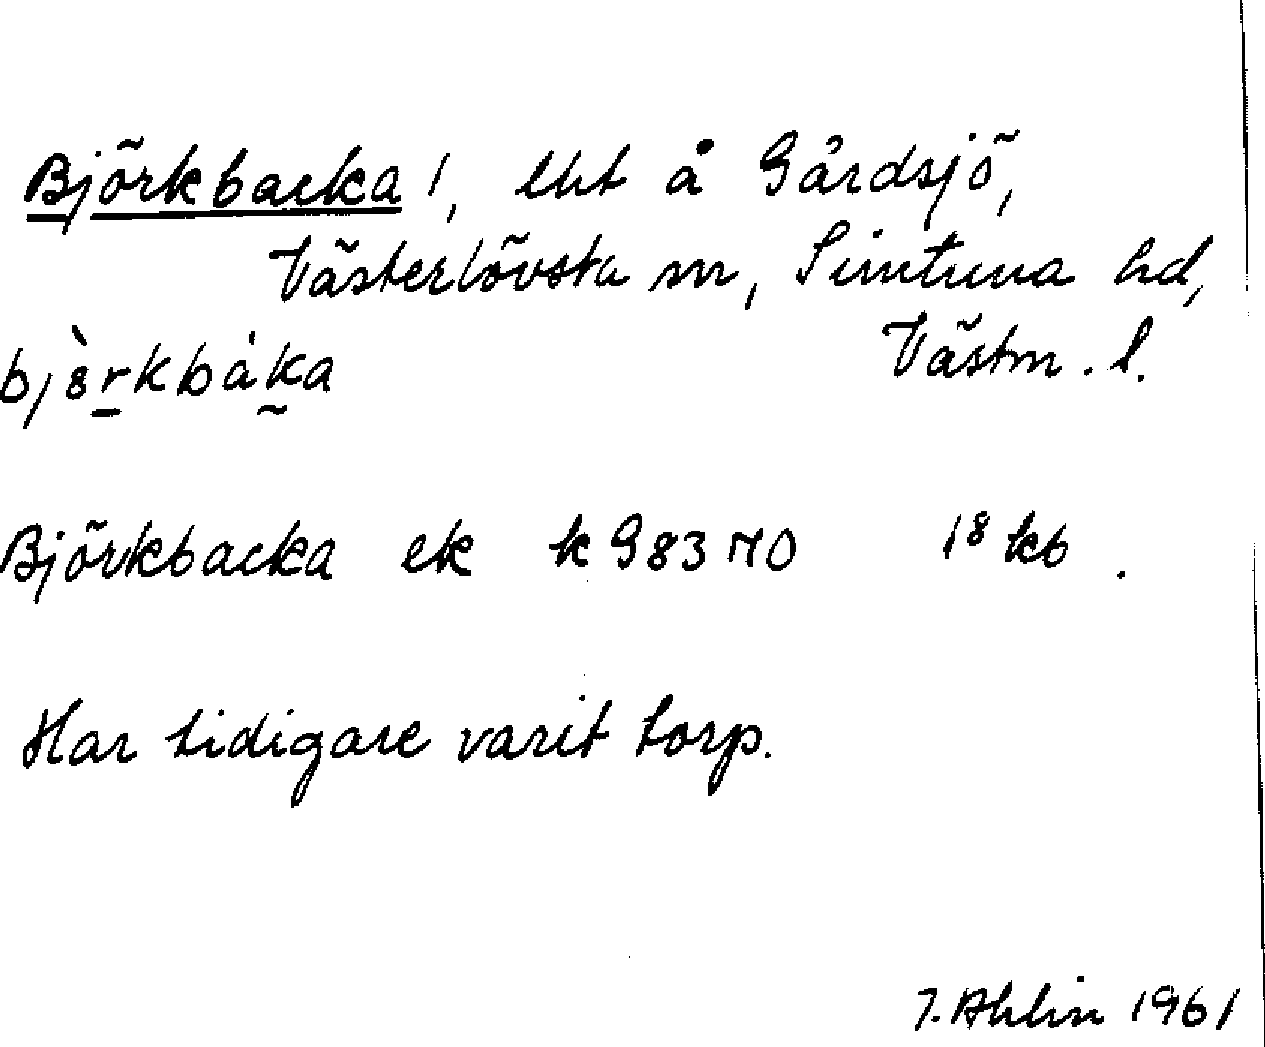 Björkbacka 1, lht å Gårdsjö,
Västerlövsta sn, Simtuna hd,
Västm. l.
bjə̀rkbáka
Björkbacka ek k G83 NO 18 kb.
Har tidigare varit torp.
J. Ahlin 1961